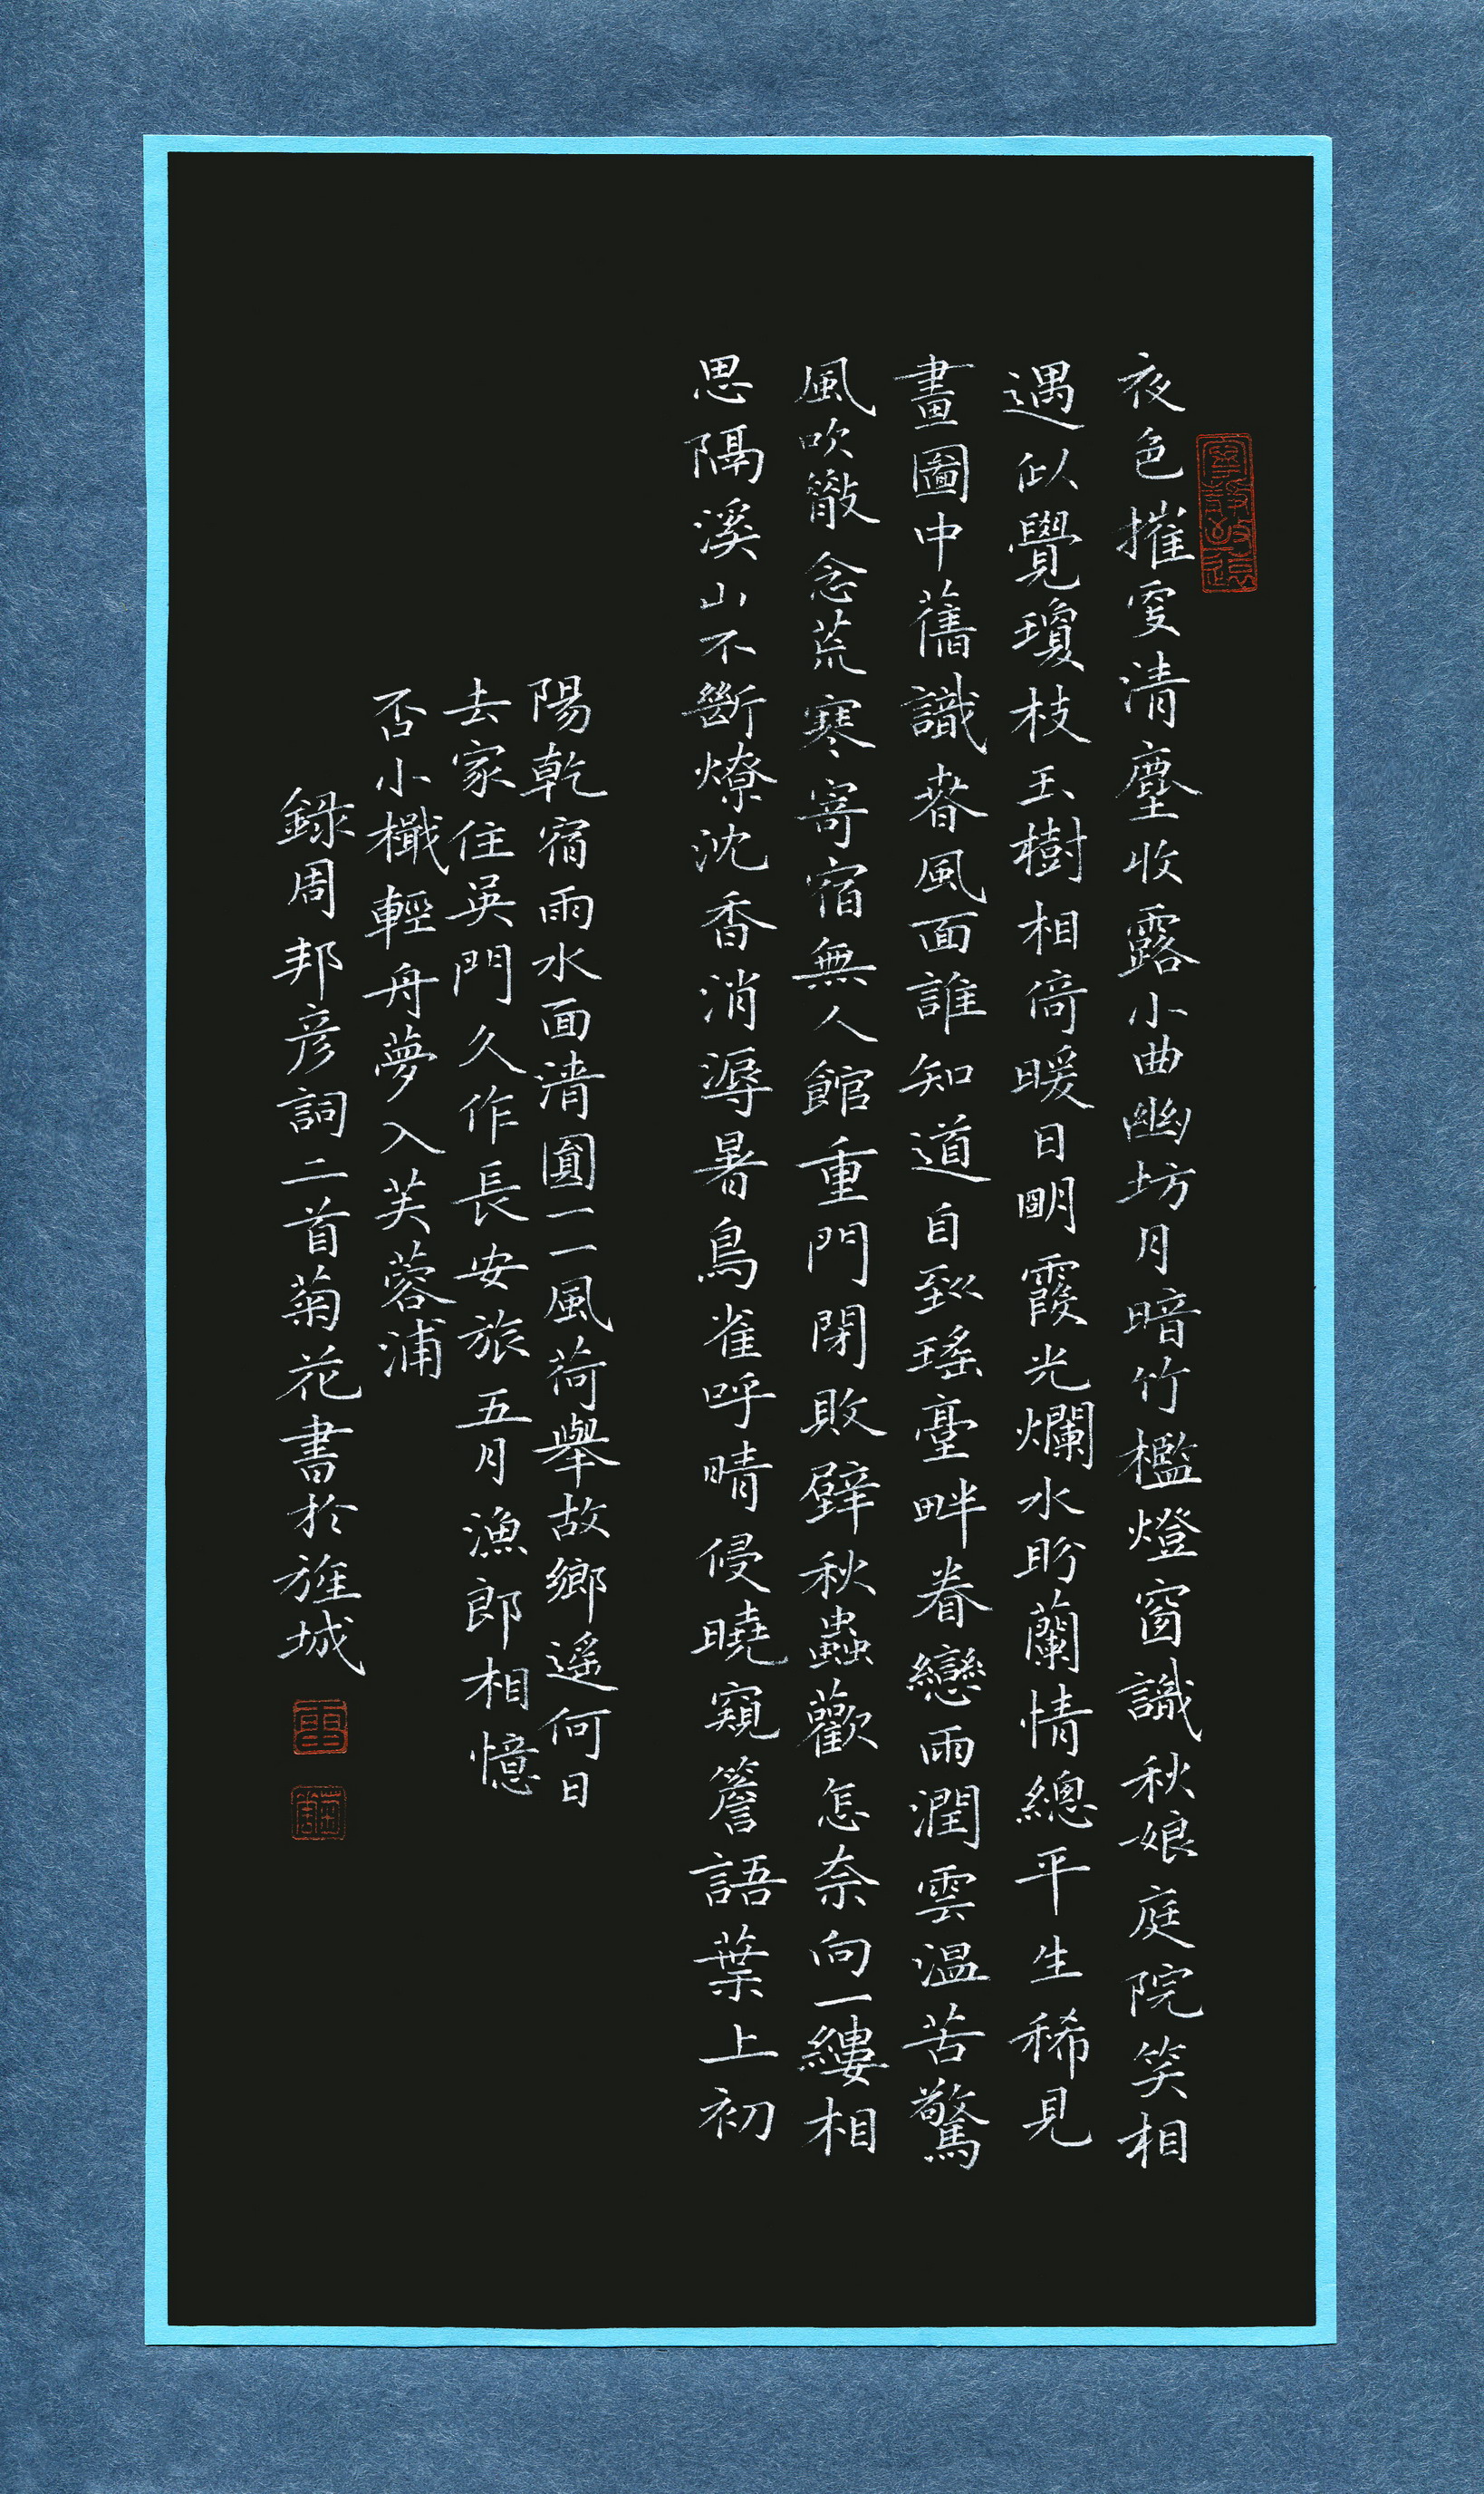 夜色摧更清塵收露小曲幽坊月暗竹檻燈窗識秋娘庭院笑相
遇似覺瓊枝玉樹相倚暖日明霞光爛水盼蘭情總平生稀見
畫圖中舊識春風面誰知道自到瑤臺畔眷戀雨潤雲温苦驚
風吹散念荒寒寄宿無人館重門閉敗壁秋蟲歎怎奈向一縷相
思隔溪山不斷燎沈香消溽暑鳥雀呼晴侵曉窺簷語葉上初
陽乾宿雨水面清圓一一風荷舉故鄉遥何日
去家住吳門久作長安旅五月漁郎相憶
否小檝輕舟夢入芙蓉浦
錄周邦彥詞二首菊花書於旌城